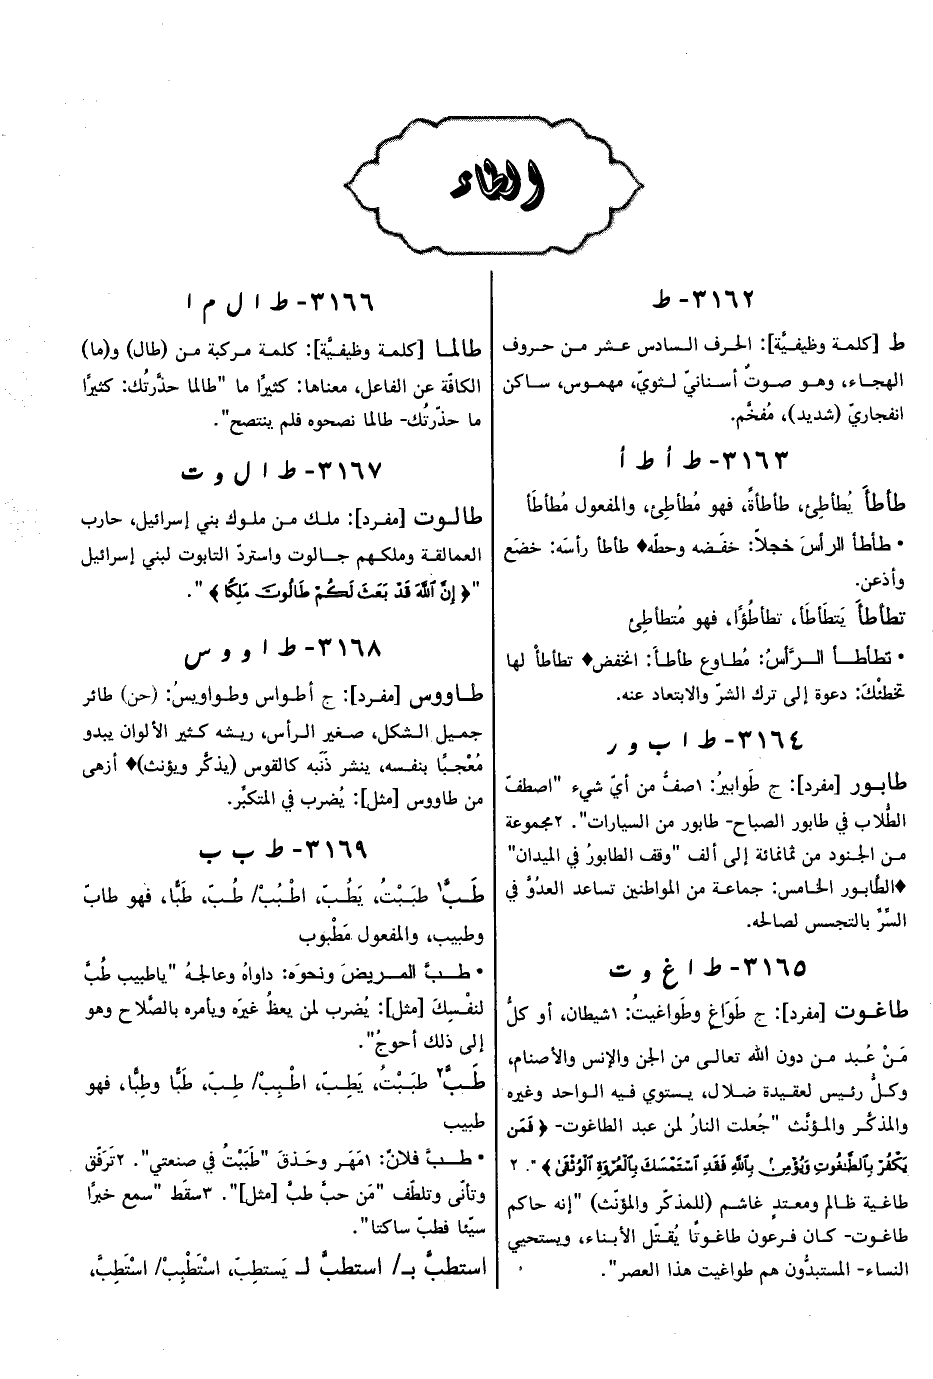 الطاء
٣١٦٢- ط
ط [كلمة وظيفيَّة]: الحرف السادس عشر من حروف
الهجاء، وهو صوتٌ أسنانيّ لثويّ، مهموس، ساكن
انفجاريّ (شديد)، مُفخَّم.
٣١٦٣- ط أ ط أ
طأطأَ يُطأطِئ، طأطأةً، فهو مُطأطِئ، والمفعول مُطأطَأ
• طأطأ الرأسَ خجلاً: خفّضه وحطّه♦ طأطأ رأسَه: خضَع
وأذعن.
تطأطأَ يَتطَأطَأ، تطأطُؤًا، فهو مُتطأطِئ
• تطأطأ الرَّأسُ: مُطاوع طأطأ: انخفض♦ تطأطأْ لها
تخطئْكَ: دعوة إلى ترك الشرّ والابتعاد عنه.
٣١٦٤- ط ا ب و ر
طابور [مفرد]: ج طَوابيرُ: ١صفٌّ من أيّ شيء "اصطفّ
الطُّلاب في طابور الصباح- طابور من السيارات". ٢مجموعة
من الجنود من ثمانمائة إلى ألف "وقف الطابورُ في الميدان"
♦الطَّابور الخامس: جماعة من المواطنين تساعد العدُوَّ في
السِّرِّ بالتجسس لصالحه.
٣١٦٥- ط ا غ و ت
طاغوت [مفرد]: ج طَوَاغٍ وطَواغيتُ: ١شيطان، أو كلُّ
مَنْ عُبد من دون الله تعالى من الجن والإنس والأصنام،
وكلُّ رئيس لعقيدة ضلال، يستوي فيه الواحد وغيره
والمذكَّر والمؤنَّث "جُعلت النارُ لمن عبد الطاغوت- ﴿ فَمَن
يَكْفُرْ بِٱلطَّٰغُوتِ وَيُؤْمِنۢ بِٱللَّهِ فَقَدِ ٱسْتَمْسَكَ بِٱلْعُرْوَةِ ٱلْوُثْقَىٰ ﴾ ". ٢
طاغية ظالم ومعتدٍ غاشم (للمذكّر والمؤنّث) "إنه حاكم
طاغوت- كان فرعون طاغوتًا يُقتّل الأبناء، ويستحيي
النساء- المستبدُّون هم طواغيت هذا العصر".
٣١٦٦- ط ا ل م ا
طالما [كلمة وظيفيَّة]: كلمة مركبة من (طال) و(ما)
الكافّة عن الفاعل، معناها: كثيرًا ما "طالما حذَّرتُك: كثيرًا
ما حذّرتُك- طالما نصحوه فلم ينتصح".
٣١٦٧- ط ا ل و ت
طالوت [مفرد]: ملك من ملوك بني إسرائيل، حارب
العمالقة وملكهم جالوت واستردّ التابوت لبني إسرائيل
"﴿ إِنَّ ٱللَّهَ قَدْ بَعَثَ لَكُمْ طَالُوتَ مَلِكًا ﴾ ".
٣١٦٨- ط ا و و س
طاووس [مفرد]: ج أطواس وطواويسُ: (حن) طائر
جميل الشكل، صغير الرأس، ريشه كثير الألوان يبدو
مُعْجبًا بنفسه، ينشر ذنَبه كالقوس (يذكَّر ويؤنث)♦ أزهى
من طاووس [مثل]: يُضرب في المتكبِّر.
٣١٦٩- ط ب ب
طَبَّ١ طبَبْتُ، يَطُبّ، اطْبُبْ/ طُبّ، طَبًّا، فهو طابّ
وطبيب، والمفعول مَطْبوب
• طبَّ المريضَ ونحوَه: داواهُ وعالجهُ "ياطبيب طُبَّ
لنفْسِكَ [مثل]: يُضرب لمن يعظُ غيرَه ويأمره بالصَّلاح وهو
إلى ذلك أحوجُ".
طَبَّ٢ طبَبْتُ، يَطِبّ، اطْبِبْ/ طِبّ، طَبًّا وطِبًّا، فهو
طبيب
• طبَّ فلانٌ: ١مَهَر وحَذقَ "طبَبْتُ في صنعتي". ٢تَرَفّق
وتأنّى وتلطّف "مَن حبَّ طبَّ [مثل]". ٣سقَط "سمع خبرًا
سيّئا فطبّ ساكتا".
استطبَّ بـ/ استطبَّ لـ يَستطِبّ، اسْتَطْبِبْ/ اسْتَطِبَّ،